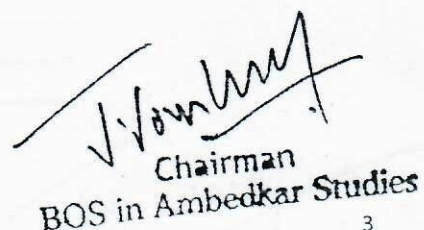 Chairman
BOS in Ambedkar Studies
3